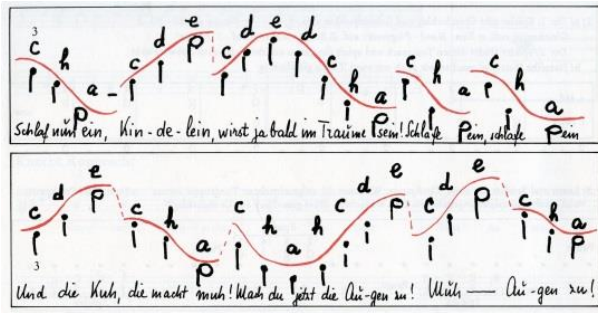 3
c h a c d e c d e d c h a c h a c h a
Schlaf nun ein, Kin-de-lein, wirst ja bald im Traume sein! Schlafe ein, schlafe ein
c d e c h a c h a h c d e c d e c h a
3
Und die Kuh, die macht muh! Mach du jetzt die Au-gen zu! Muh — Au-gen zu!